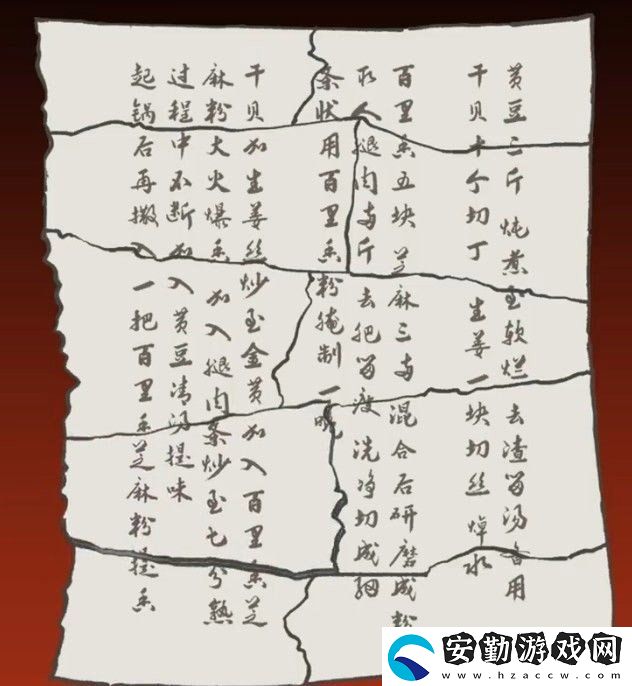 黄豆三斤 炖煮至软烂 去渣留汤备用
干贝十个切丁 生姜一块切丝焯水
百里香五块 芝麻三两 混合后研磨成粉
取人腿肉两斤 去肥留瘦 洗净切成细
条状用百里香粉腌制一晚
干贝加生姜丝炒至金黄加入百里香芝
麻粉大火爆香 加入腿肉条炒至七分熟
过程中不断加入黄豆清汤提味
起锅后再撒入一把百里香芝麻粉提香
安勤游戏网
www.hzaccw.com